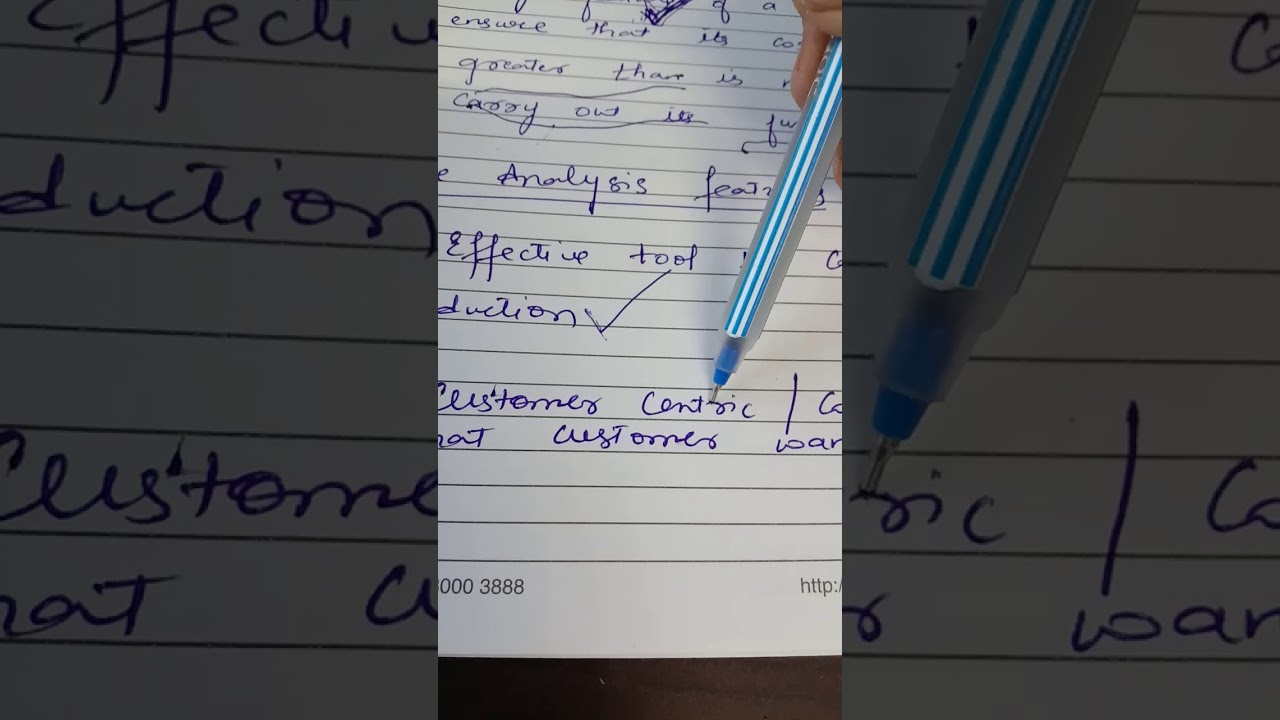 of a
ensure that its cos
greater than is n
carry out its fu
e Analysis feat s
Effective tool C
duction
Customer Centric | Co
hat customer wan
000 3888 http:/